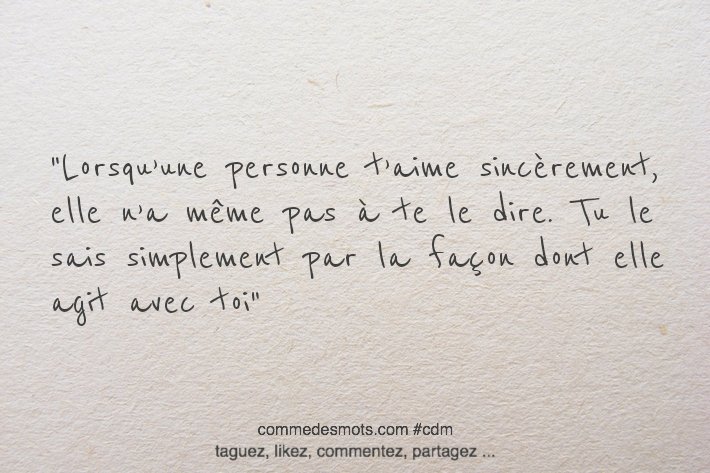 "Lorsqu'une personne t'aime sincèrement,
elle n'a même pas à te le dire. Tu le
sais simplement par la façon dont elle
agit avec toi"
commedesmots.com #cdm
taguez, likez, commentez, partagez ...